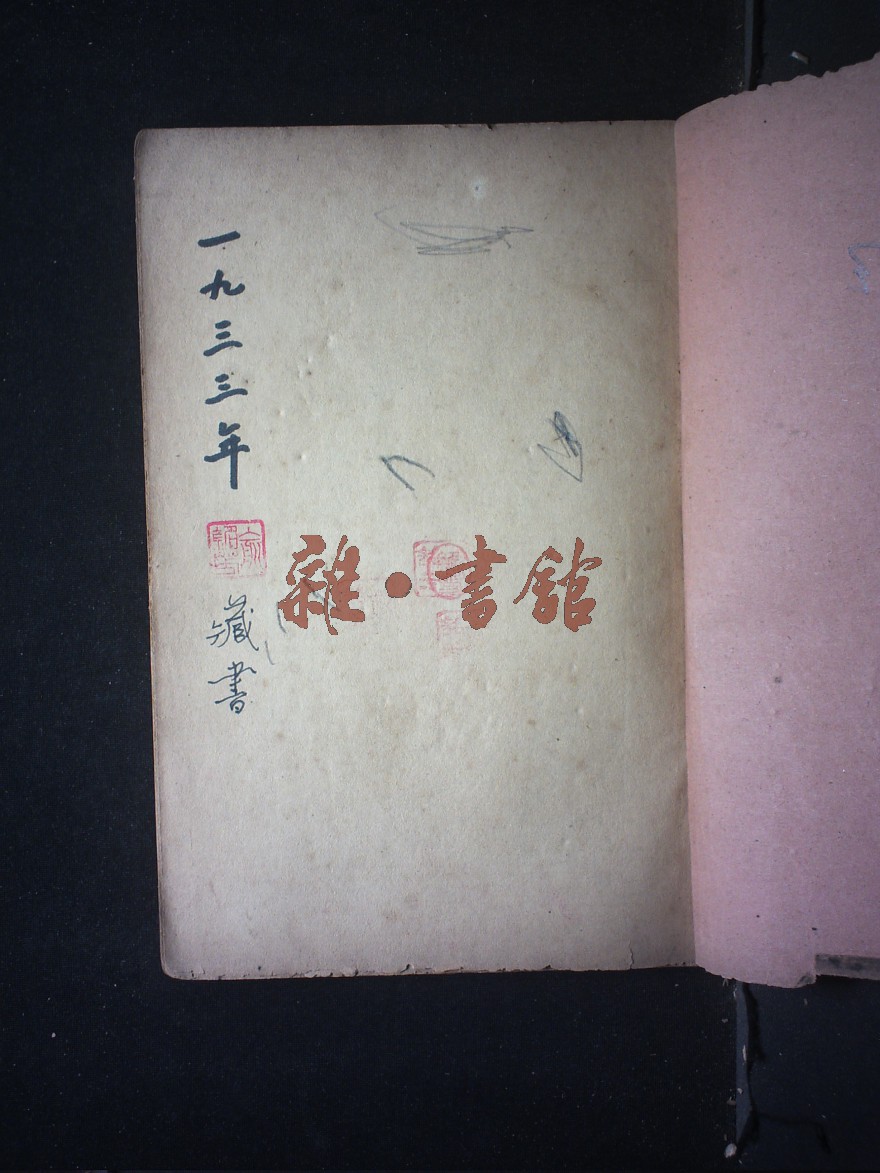 一九三三年
藏書
雜·書館